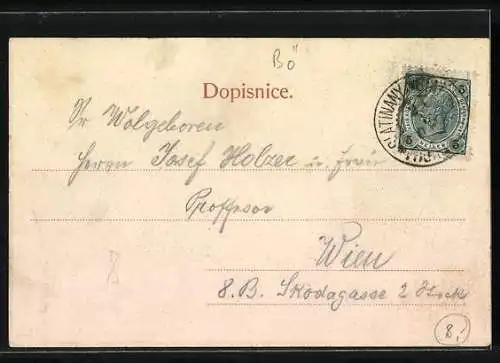 Bö
Dopisnice.
Sr Wolgeboren
Herrn Josef Holzer u. Frau
Professor
Wien
8. B. Skodagasse 2 Stock
SLATINANY
5 HELLER 5
8,-